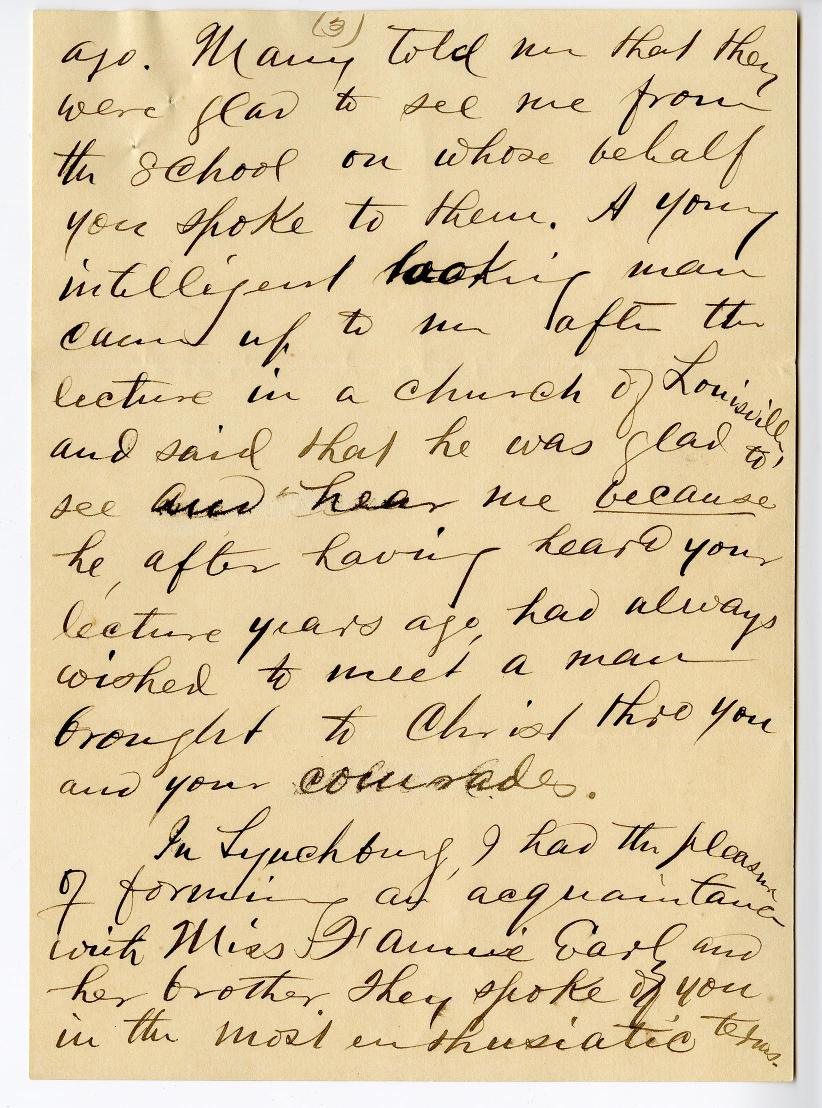 (3)
ago. Many told me that they
were glad to see me from
the School on whose behalf
you spoke to them. A young
intelligent looking man
came up to me after the
lecture in a church of Louisville,
and said that he was glad to
see and hear me because
he, after having heard your
lecture years ago, had always
wished to meet a man
brought to Christ thro you
and your comrades.
In Lynchburg, I had the pleasure
of forming an acquaintance
with Miss Fannie Early and
her brother they spoke of you
in the most enthusiatic terms.